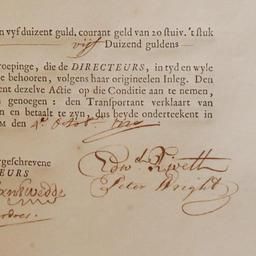 n vyf duizent guld. courant geld van 20 stuiv. 't stuk
vijf Duizend guldens
roepinge, die de DIRECTEURS, in tyd en wyle
te behooren, volgens haar origineelen Inleg. Den
ent dezelve Actie op die Conditie aan te nemen,
genoegen : den Transportant verklaart van
n en betaalt te zyn, dus beyde onderteekent in
M den 4e Octob.
rgeschrevene
EURS
Edw.d
Peter Wright